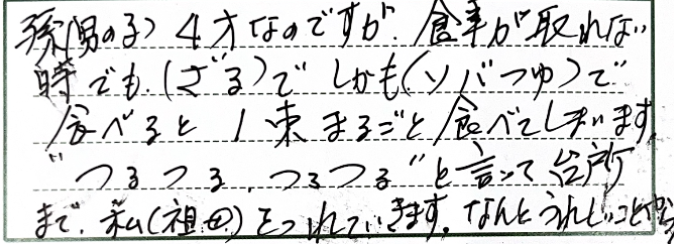 孫(男の子)4才なのですが、食事が取れない
時でも、(ざる)でしかも(ソバつゆ)で
食べると1束まるごと食べてしまいます。
"つるつる、つるつる"と言って台所
まで、私(祖母)をつれていきます。なんとうれしいことやら